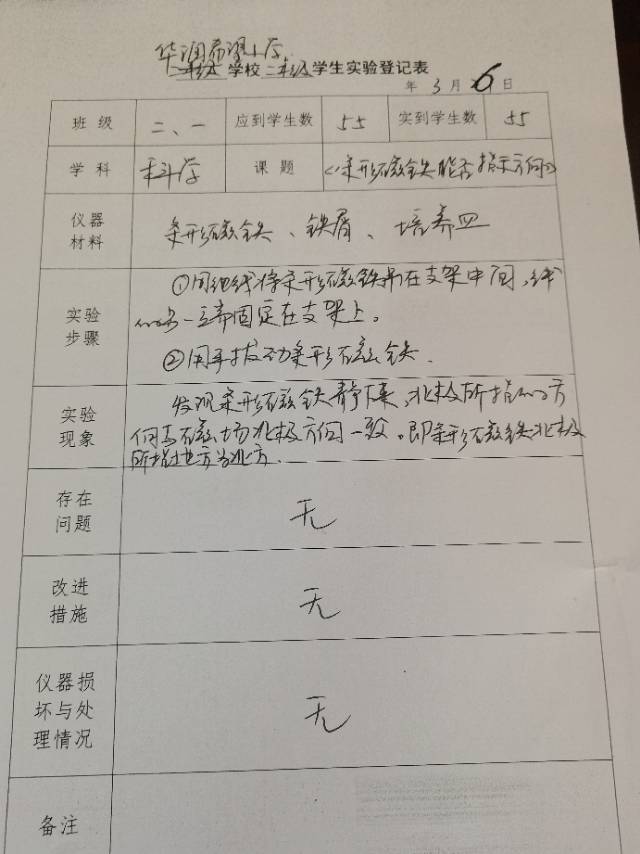 华润希望小学
学校二年级学生实验登记表
年 3月6日
班 级 二、一 应到学生数 55 实到学生数 55
学 科 科学 课 题 《条形磁铁能否指示方向》
仪器
材料
条形磁铁、铁屑、培养皿
实验
步骤
①用细线将条形磁铁吊在支架中间,线
的另一端固定在支架上。
②用手拨动条形磁铁.
实验
现象
发现条形磁铁静下来,北极所指的方
向与磁场北极方向一致。即条形磁铁北极
所指地方为北方.
存在
问题
无
改进
措施
无
仪器损
坏与处
理情况
无
备注